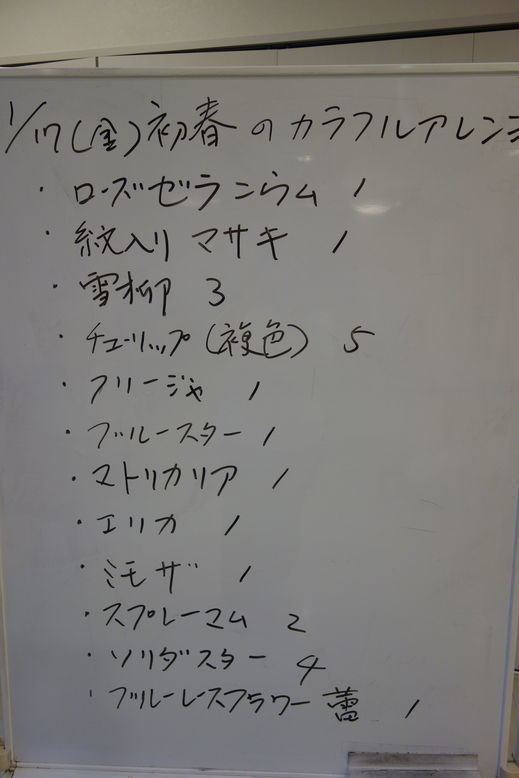 1/17(金)初春のカラフルアレンジ
・ローズゼラニウム 1
・紋入り マサキ 1
・雪柳 3
・チューリップ(複色) 5
・フリージャ 1
・ブルースター 1
・マトリカリア 1
・エリカ 1
・ミモザ 1
・スプレーマム 2
・ソリダスター 4
・ブルーレースフラワー 蕾 1